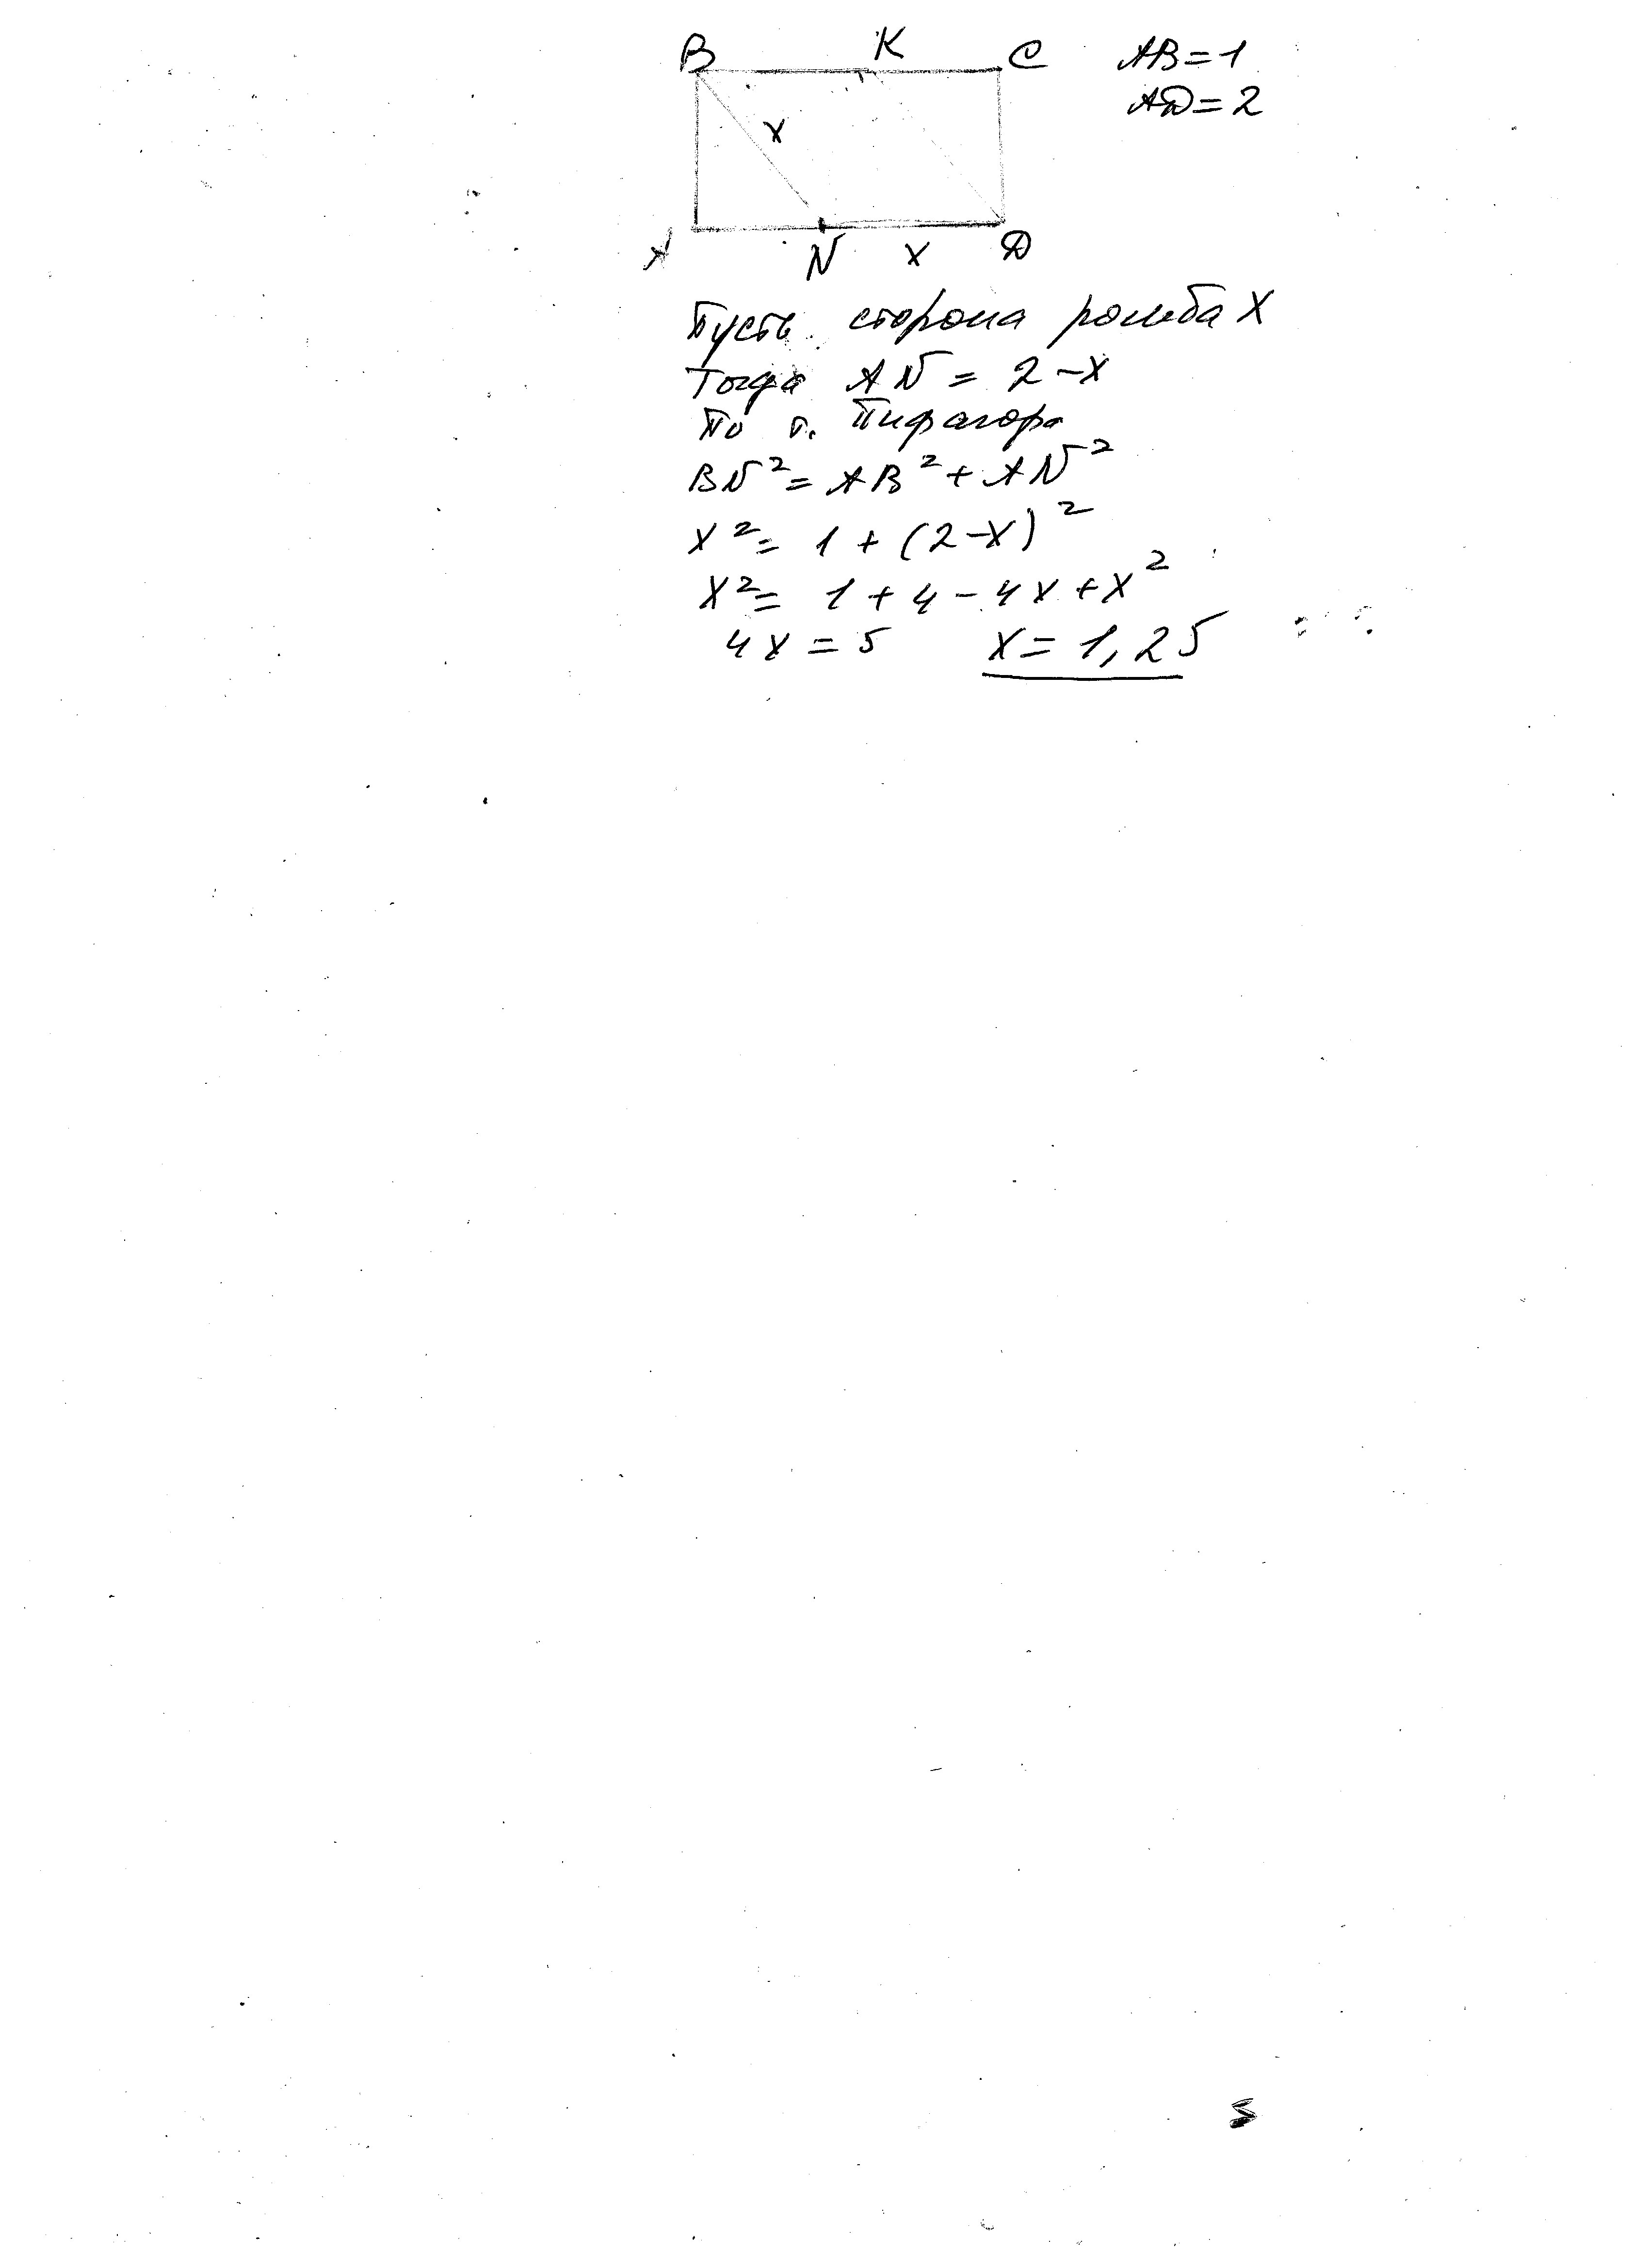 B K C AB=1
AD=2
x
A N x D
Пусть сторона ромба X
Тогда AN = 2-x
По т. Пифагора
BN²= AB²+AN²
x²= 1+(2-x)²
x²= 1+4-4x+x²
4x=5 x=1,25